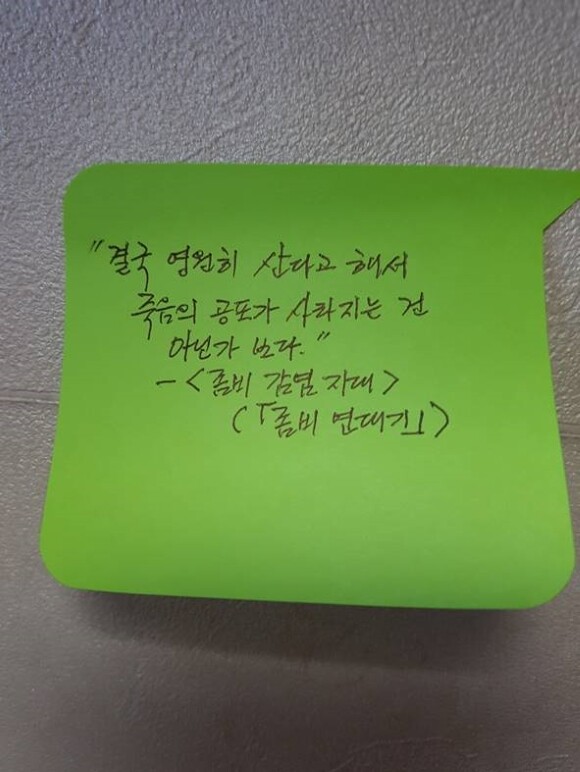 "결국 영원히 산다고 해서
죽음의 공포가 사라지는 건
아닌가 보다."
-<좀비 감염 지대>
(「좀비 연대기」)